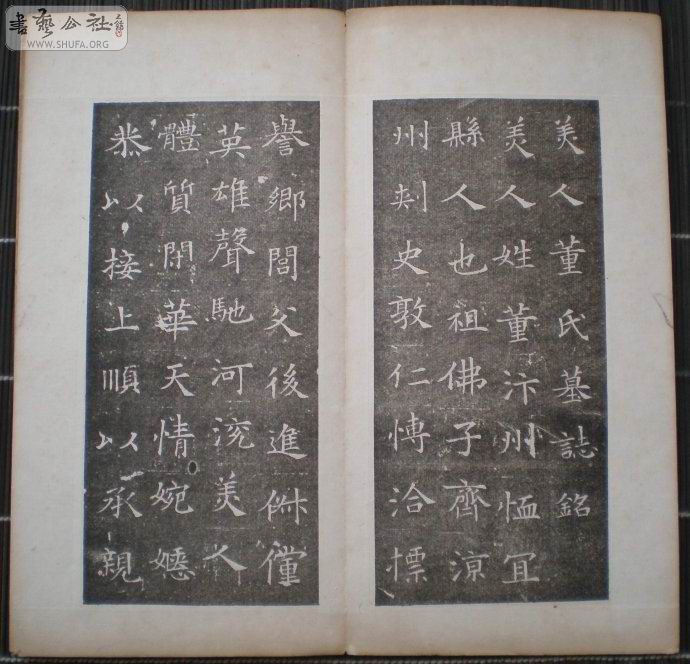 書藝公社
WWW.SHUFA.ORG
美人董氏墓誌銘
美人姓董汴州恤宜
縣人也祖佛子齊涼
州刺史敦仁博洽摽
譽鄉閭父後進俶儻
英雄聲馳河淤美人
體質閑華天情婉嫕
恭以接上順以承親